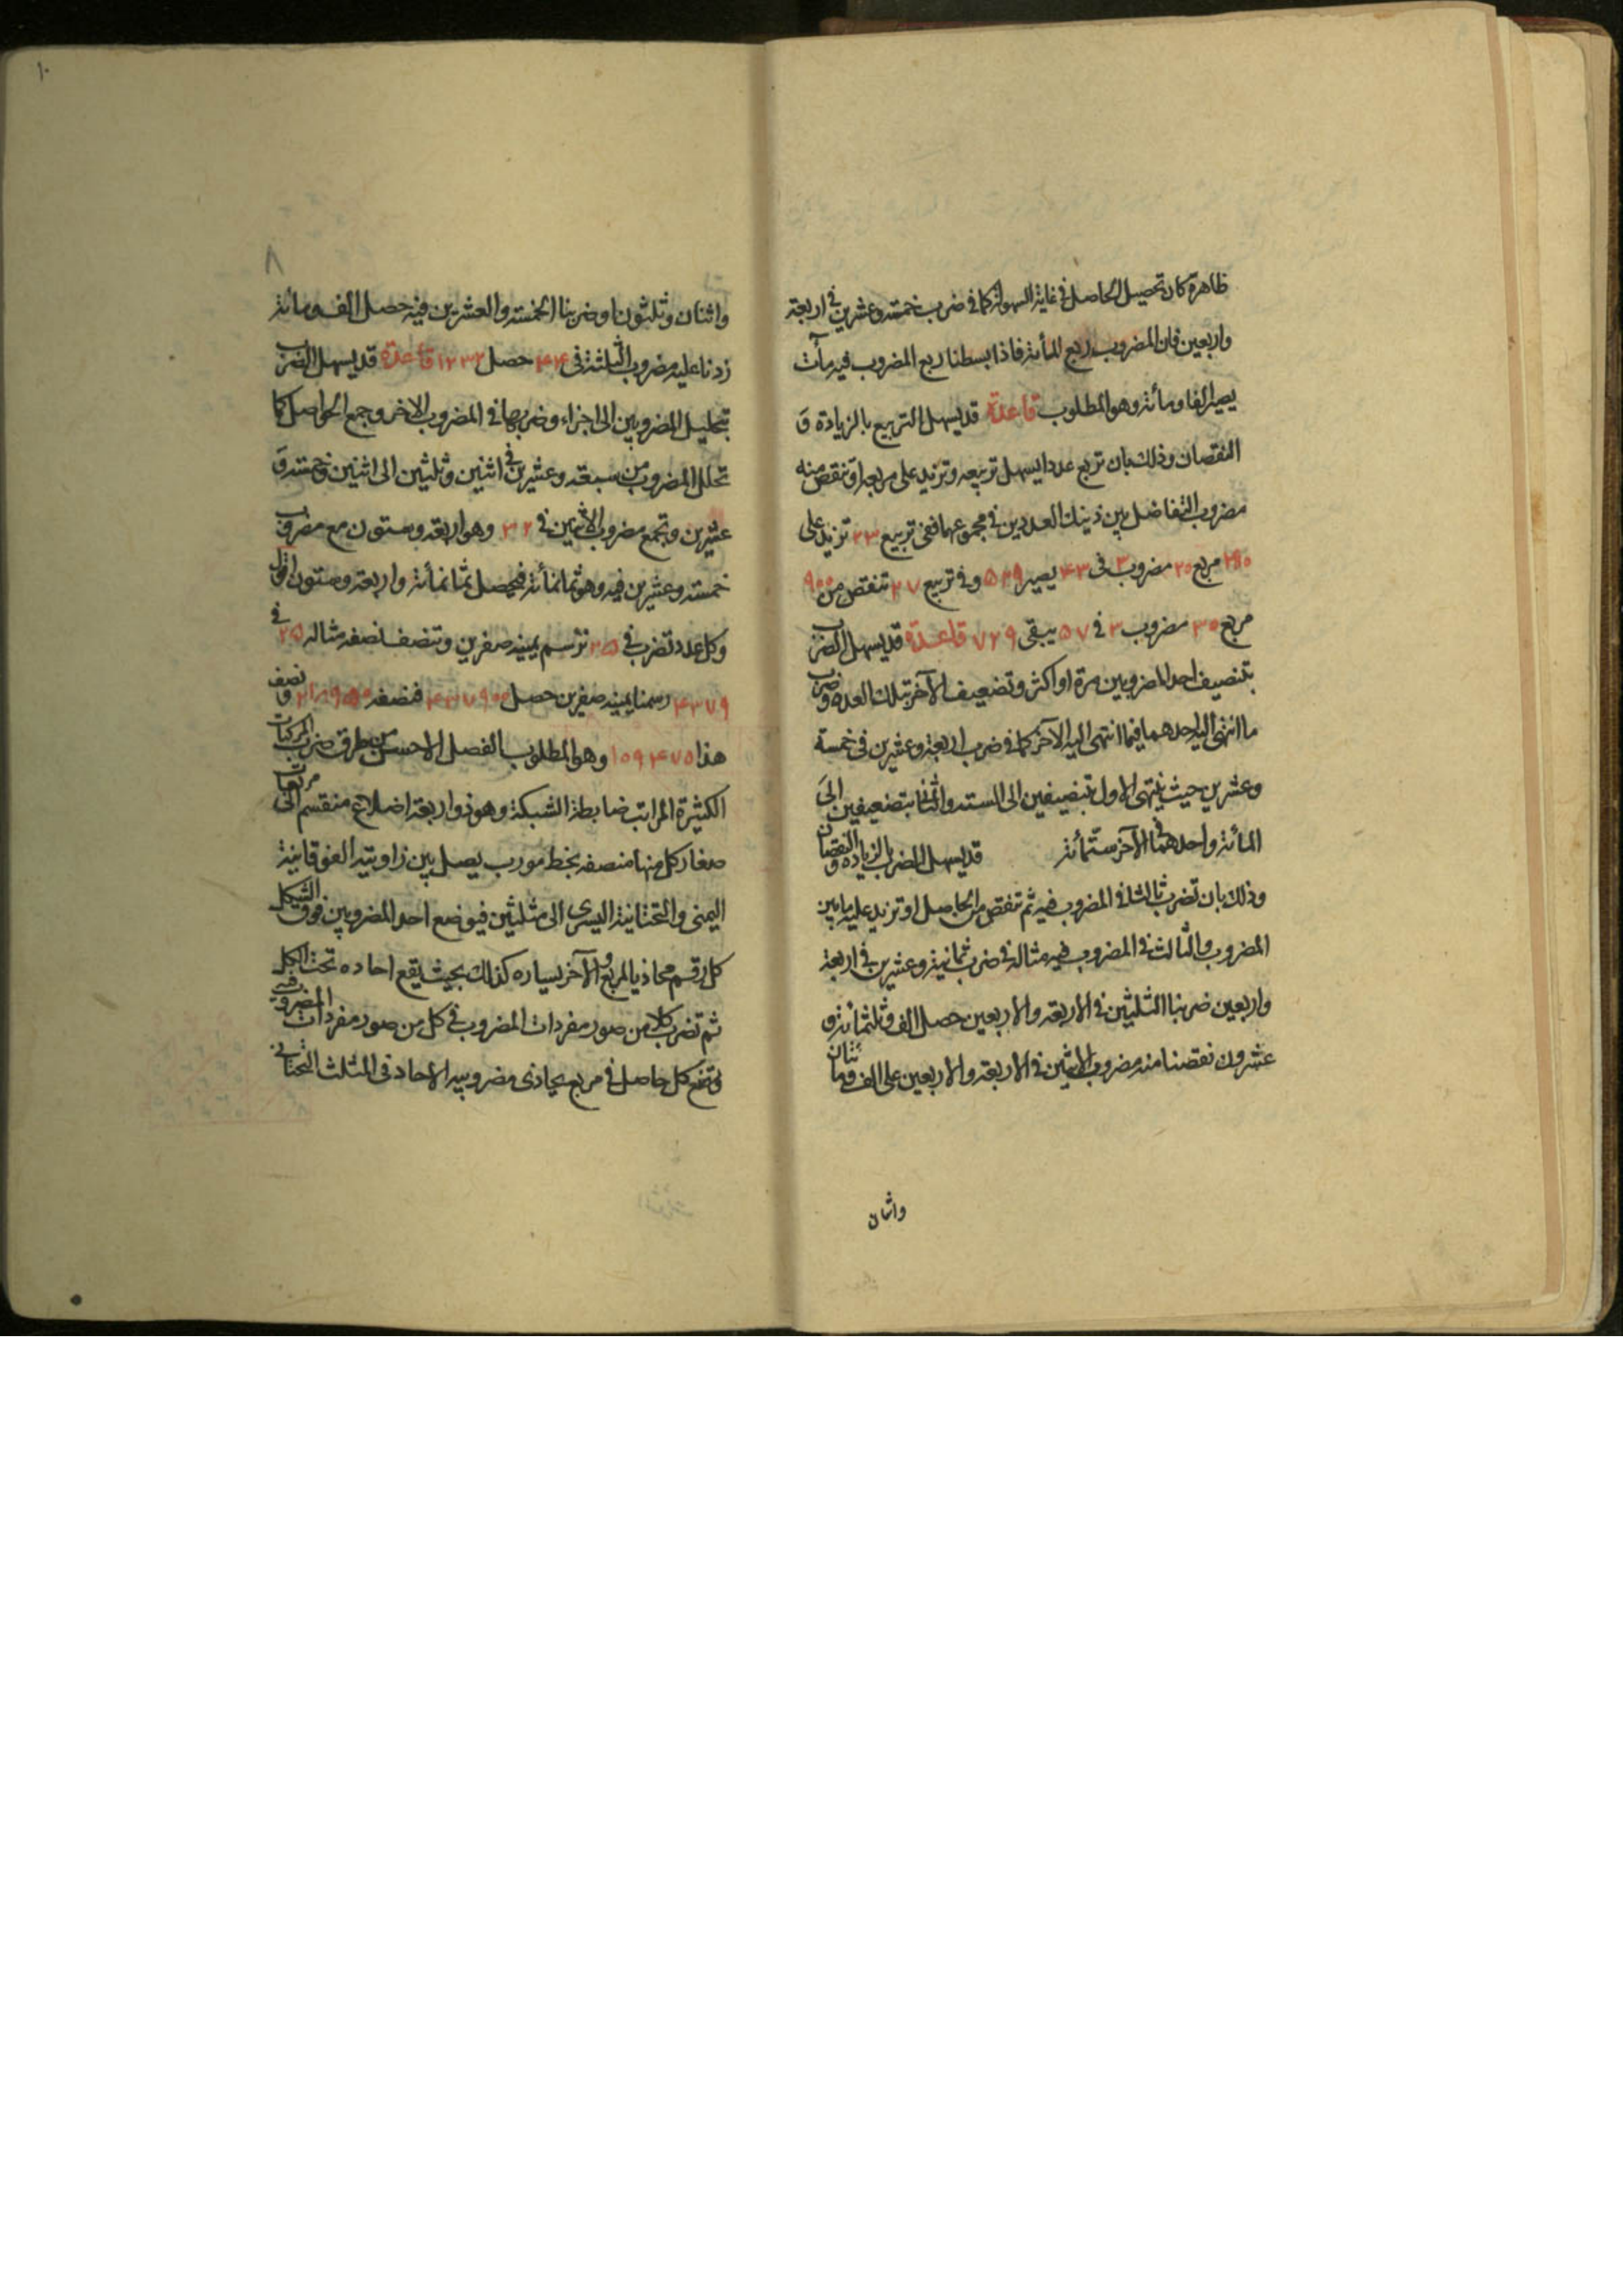 ظاهرة كان تحصيل الحاصل فى غاية السهولة كما فى ضرب خمسة وعشرين فى اربعة
واربعين فان المضروب ربع المأئة فاذا بسطنا ربع المضروب فيه مأت
يصير الفا ومأئة وهو المطلوب قاعدة قد يسهل التربيع بالزيادة و
النقصان وذلك بان تربع عددا يسهل تربيعه وتزيد على مربعه او تنقص منه
مضروب التفاضل بين ذينك العددين فى مجموعهما ففى تربيع ٢٣ تزيد على
مربع ٢٥ مضروب ٣ فى ٤٣ يصير ٥٢٩ وفى تربيع ٢٧ تنقص من ٩٥٥
مربع ٣٥ مضروب ٣ فى ٥٧ يبقى ٧٢٩ قاعدة قد يسهل الضرب
بتنصيف احد المضروبين مرة او اكثر وتضعيف الآخر بتلك العدة وضرب
ما انتهى اليه احدهما فيما انتهى اليه الآخر كما فى ضرب اربعة وعشرين فى خمسة
وعشرين حيث ينتهى الاول بتنصيفين الى الستة والثانى بتضعيفين الى
المأئة واحدهما فى الآخر ستمأئة قد يسهل الضرب بالزيادة والنقصان
وذلك بان تضرب ثالثا فى المضروب فيه ثم تنقص من الحاصل او تزيد عليه ما بين
المضروب والثالث فى المضروب فيه مثاله فى ضرب ثمانية وعشرين فى اربعة
واربعين ضربنا الثلثين فى الاربعة والاربعين حصل الف وثلثمأئة و
عشرون نقصنا منه مضروب الاثنين فى الاربعة والاربعين على الف ومأتان
واثنان
١٠
٨
واثنان وثلثون او ضربنا الخمسة والعشرين فيه حصل الف ومأئة
زدنا عليه مضروب الثلثة فى ٤٤ حصل ١٢٣٢ قاعدة قد يسهل الضرب
بتحليل المضروبين الى اجزاء وضربها فى المضروب الاخر وجمع الحواصل كما
تحلل المضروب من سبعة وعشرين فى اثنين وثلثين الى اثنين وخمسة و
عشرين وتجمع مضروب الاثنين فى ٣٢ وهو اربعة وستون مع مضروب
خمسة وعشرين فيه وهو ثمانمأئة فيحصل ثمانمأئة واربعة وستون اقول
وكل عدد تضرب فى ٢٥ ترسم يمينه صفرين وتنصف نصفه مثاله ٢٥ فى
٤٣٧٩ رسمنا يمينه صفرين حصل ٤٣٧٩٥٥ فنصفه ٢١٨٩٥٥ ونصف
هذا ١٥٩٤٧٥ وهو المطلوب الفصل الاحسن من طرق ضرب المركبات
الكثيرة المراتب ضابطة الشبكة وهو ذو اربعة اضلاع منقسم الى مربعات
صغار كل منها منصفه بخط مورب يصل بين زاويتيه الفوقانية
اليمنى والتحتانية اليسرى الى مثلثين فيوضع احد المضروبين فوق الشكل
كل رقم محاذيا لمربع والآخر يساره كذلك بحيث يقع احاده تحت الكل
ثم تضرب كلا من صور مفردات المضروب فى كل من صور مفردات المضروب فيه
وتضع كل حاصل فى مربع يحاذى مضروبيه الاحاد فى المثلث التحتانى